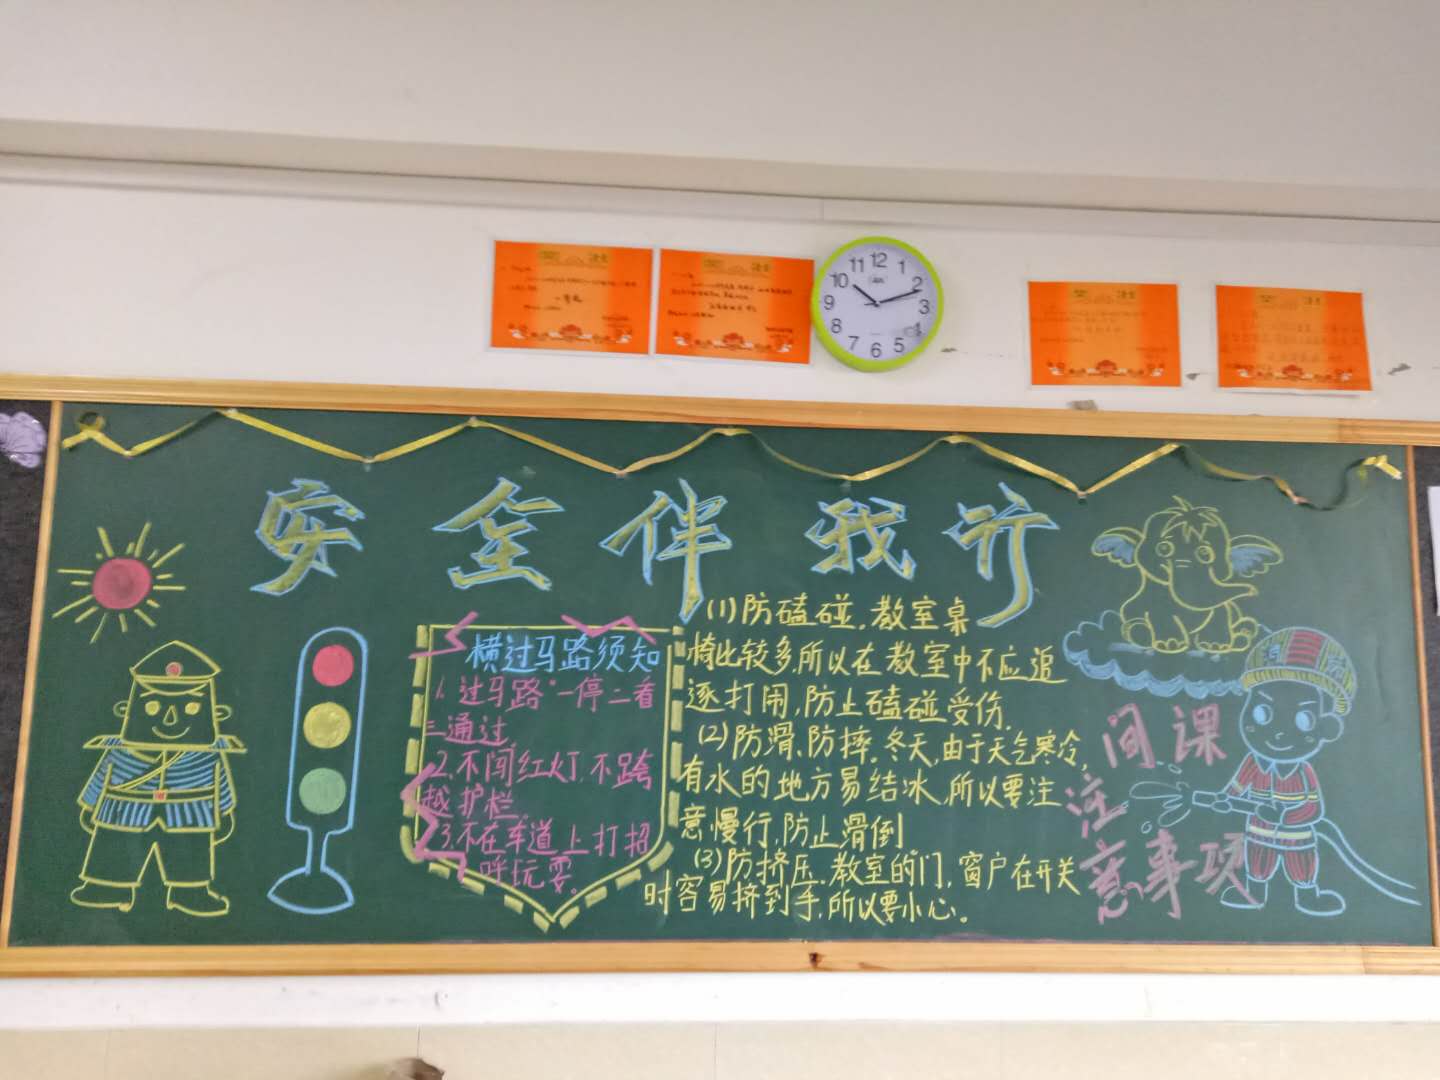 12
1
2
3
4
5
6
7
8
9
10
11
安全伴我行
横过马路须知
1、过马路“一停二看
三通过
2、不闯红灯,不跨
越护栏。
3、不在车道上打招
呼玩耍。
(1)防磕碰,教室桌
椅比较多,所以在教室中不应追
逐打闹,防止磕碰受伤.
(2)防滑、防摔。冬天,由于天气寒冷,
有水的地方易结冰,所以要注
意慢行,防止滑倒
(3)防挤压.教室的门,窗户在开关
时容易挤到手,所以要小心。
间课
注
意事项
消防